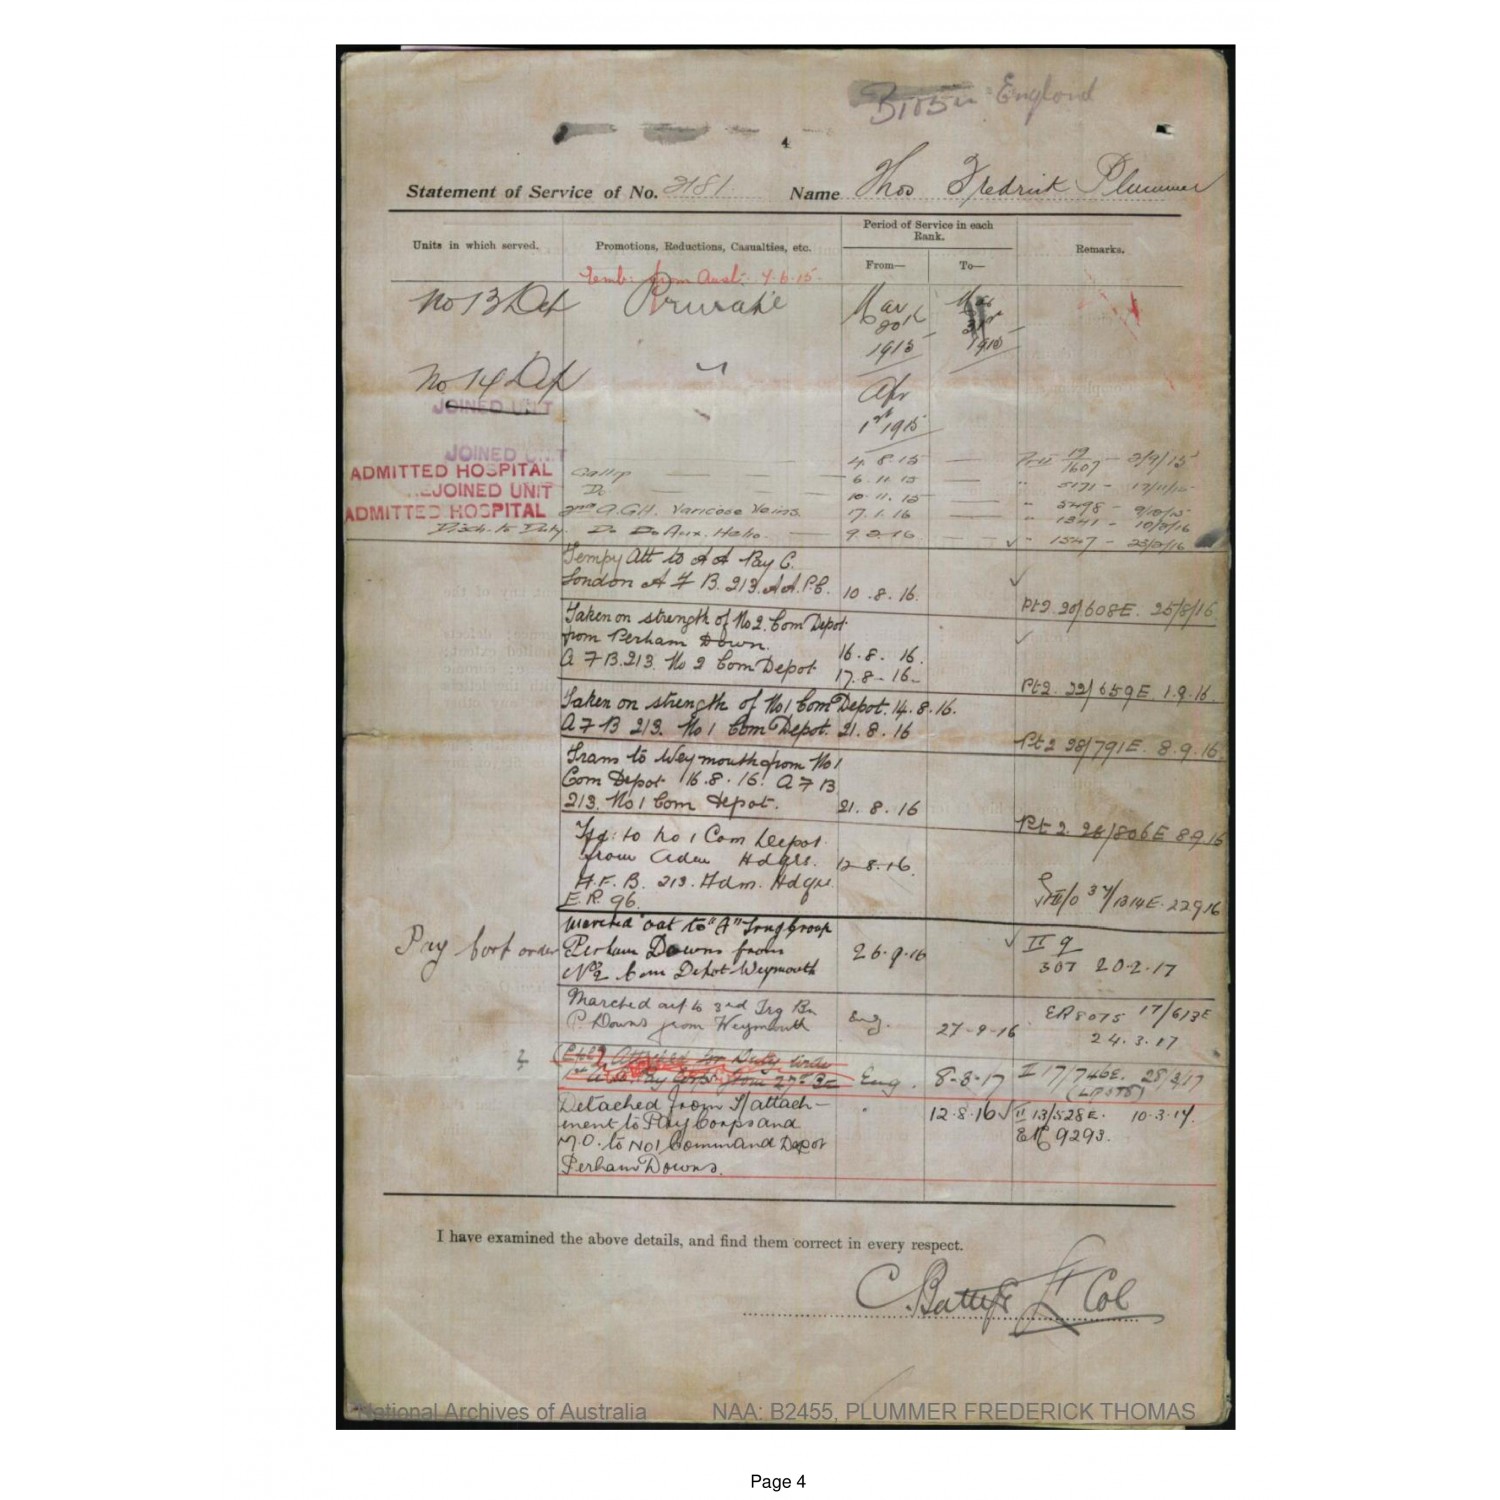 England
4
Statement of Service of No. 2181. Name Thos Fredrick Plummer
Units in which served.
Promotions, Reductions, Casualties, etc.
Period of Service in each Rank.
From—
To—
Remarks.
Emb: from Aust: 4.6.15
No 13 Dep Private Mar 20th 1915 Mar 31st 1915
No 14 Dep " Apr 1st 1915
JOINED UNIT
JOINED UNIT 4.8.15 — 19/1607 —
ADMITTED HOSPITAL Gallip — — 6.11.15 — " 5171 —
REJOINED UNIT Do — — 10.11.15 — " 5498 —
ADMITTED HOSPITAL 2nd A.G.H. Varicose Veins. 17.1.16 — " 1341 —
Disch. to Duty. Do Do Aux. Helio. — 9.2.16 — " 1547 — 23/2/16
Tempy Att to A A Pay C.
London A F B. 213. A.A.P.C. 10.8.16. Pt 2. 20/608E. 25/8/16
Taken on strength of No 2. Com Depot
from Perham Down. 16.8.16.
A F B. 213. No 2 Com Depot 17.8.16. Pt 2. 22/659E. 1.9.16.
Taken on strength of No 1 Com Depot. 14.8.16.
A F B 213. No 1 Com Depot. 21.8.16 Pt 2 28/791E. 8.9.16.
Trans to Weymouth from No 1
Com Depot 16.8.16. A F B
213. No 1 Com Depot. 21.8.16 Pt 2. 28/806E 8 9 16
Tfd: to No 1 Com Depot
from Adm Hdqrs. 12.8.16.
A.F.B. 213. Adm. Hdqrs
E.R. 96. 37/1314E. 22 9 16
Marched out to "A" Trng Group
Pay Corps order Perham Downs from 26.9.16 II 9
No 2 Com Depot Weymouth 307 20.2.17
Marched out to 3rd Trg Bn Eng. ER 8075 17/613E
P. Downs from Weymouth 27-9-16 24.3.17
Attached for Duty with
1st A.A. Pay Corps from 2nd Eng. 8-3-17 I 17/746E. 28/3/17
Detached from T/attach- " 12.8.16 II 13/528E. 10.3.17.
ment to Pay Corps and ER 9293.
M.O. to No 1 Command Depot
Perham Downs.
I have examined the above details, and find them correct in every respect.
Lt Col
National Archives of Australia NAA: B2455, PLUMMER FREDERICK THOMAS
Page 4